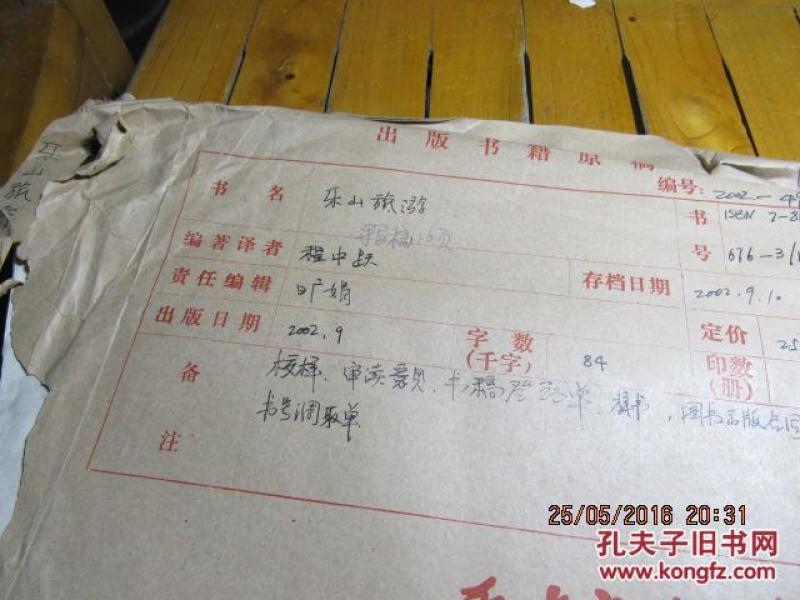 出版书籍原稿
编号: 2002-4
书名 乐山旅游 书 ISBN 7-8
手写稿
编著译者 程中跃 号 636-3/
责任编辑 存档日期 2002.9.10
出版日期 2002.9 字数(千字) 84 定价 25
印数(册)
备注 校样、审读意见、书稿登记单、样书、图书出版合同
书号调取单
乐山旅
25/05/2016 20:31
孔夫子旧书网
www.kongfz.com